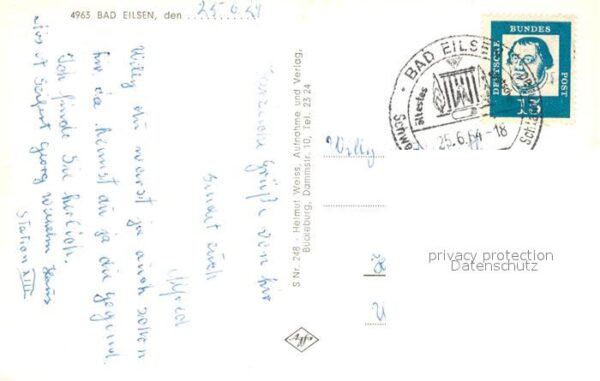 4963 BAD EILSEN, den 25.6.64
Herzliche Grüße von hir
sendet euch
Alfred
Willy du warst ja auch schon
hir, da kennst du ja die Gegend.
Ich finde sie herlich.
Georg Wilhelm Haus
Station XIII
S Nr. 248 - Helmut Weiss, Aufnahme und Verlag,
Bückeburg, Dammstr. 10, Tel. 23 24
BAD EILSEN
ältestes
25.6.64-18
DEUTSCHE
BUNDES
POST
15
Willy
privacy protection
Datenschutz